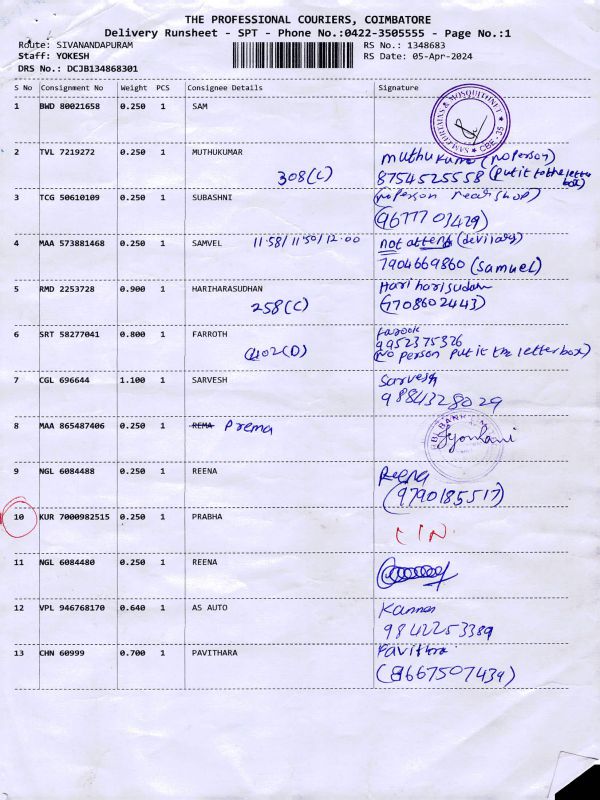 THE PROFESSIONAL COURIERS, COIMBATORE
Delivery Runsheet - SPT - Phone No.:0422-3505555 - Page No.:1
Route: SIVANANDAPURAM RS No.: 1348683
Staff: YOKESH RS Date: 05-Apr-2024
DRS No.: DCJB134868301
S No Consignment No Weight PCS Consignee Details Signature
1 BWD 80021658 0.250 1 SAM
& MOSQUITO NET CBE-35
2 TVL 7219272 0.250 1 MUTHUKUMAR muthukumar (no person)
308(C) 8754525558 (put it to the letter box)
3 TCG 50610109 0.250 1 SUBASHNI (no person near shop)
(9677703429)
4 MAA 573881468 0.250 1 SAMVEL 11.58/11.50/12.00 not attend
7904669860 (Samuel)
5 RMD 2253728 0.900 1 HARIHARASUDHAN Hari harisudan
258(C) (7708602443)
6 SRT 58277041 0.800 1 FARROTH Farook
402(D) 9952375326
(no person put it the letter box)
7 CGL 696644 1.100 1 SARVESH Sarvesh
9884328029
8 MAA 865487406 0.250 1 REMA Prema
BANK
9 NGL 6084488 0.250 1 REENA Reena
(9790185517)
10 KUR 7000982515 0.250 1 PRABHA
11 NGL 6084480 0.250 1 REENA
12 VPL 946768170 0.640 1 AS AUTO Kannan
9842253389
13 CHN 60999 0.700 1 PAVITHARA Pavithra
(8667507434)